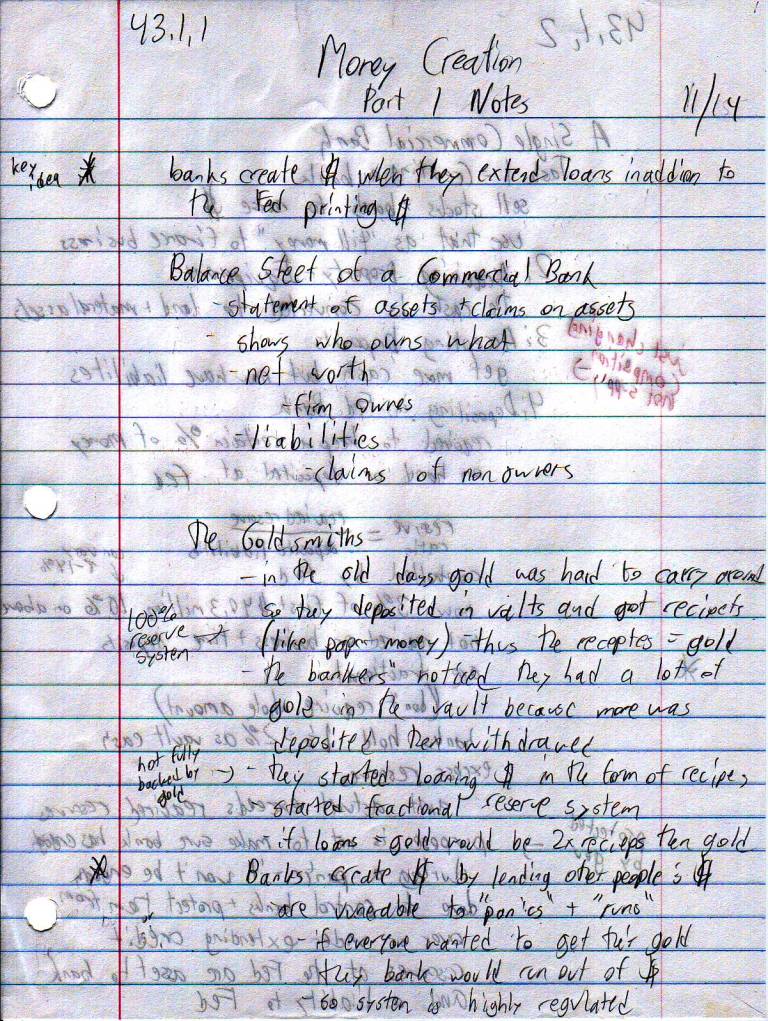 43.1.1
Money Creation
Part 1 Notes
11/14
key idea * banks create $ when they extend loans in addion to
the Fed printing $
Balance Steet of a Commercial Bank
- statement of assets + claims on assets
- shows who owns what
- net worth
- firm ownes
- liabilities
- claims of non owners
The Goldsmiths
- in the old days gold was hard to carry around
so they deposited in valts and got recipets
100% reserve system → (like paper money) - thus the receptes = gold
- the "bankers" noticed they had a lot of
gold in the vault because more was
deposited then withdrawel
not fully backed by gold → - they started loaning $ in the form of recipes,
started fractional reserve system
- if loans = gold would be 2x recieps then gold
* Banks create $ by lending other people's $
- are vunerable to "panics" + "runs"
- if everyone wanted to get their gold
they bank would run out of $
- so system is highly regulated